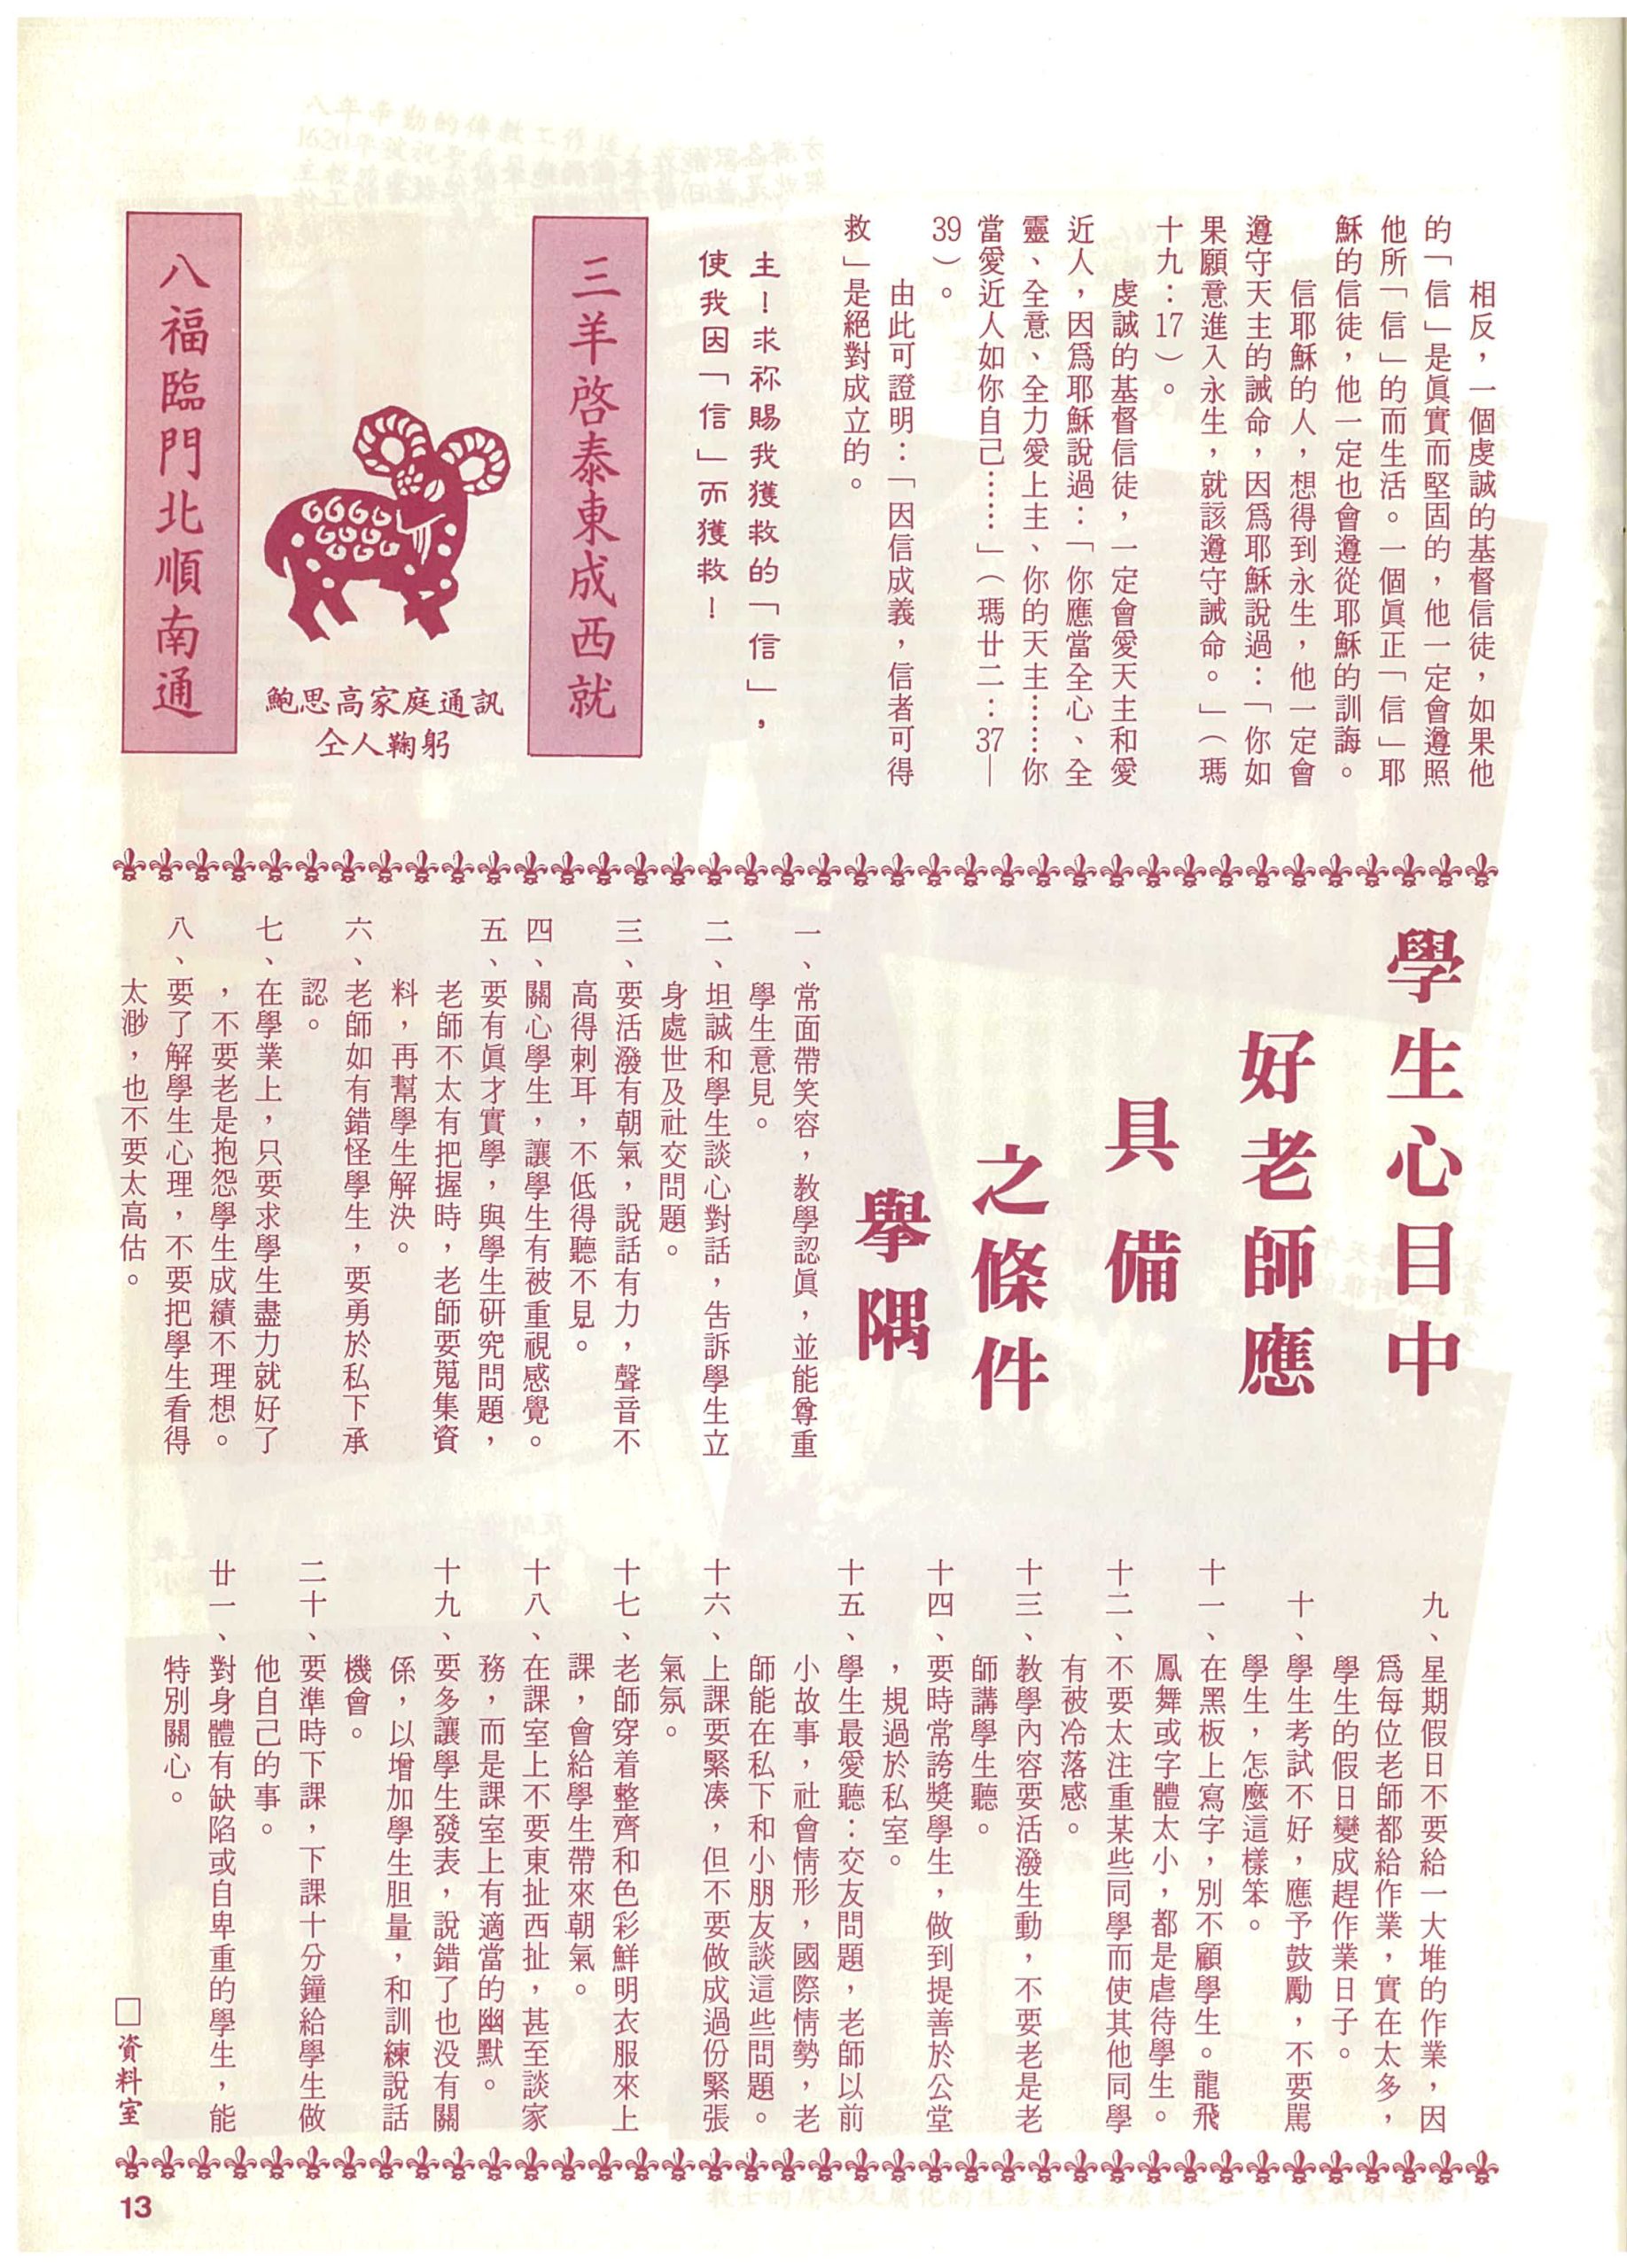 相反，一個虔誠的基督信徒，如果他
的「信」是眞實而堅固的，他一定會遵照
他所「信」的而生活。一個眞正「信」耶
穌的信徒，他一定也會遵從耶穌的訓誨。
信耶穌的人，想得到永生，他一定會
遵守天主的誡命，因爲耶穌說過：「你如
果願意進入永生，就該遵守誡命。」（瑪
十九：17）。
虔誠的基督信徒，一定會愛天主和愛
近人，因爲耶穌說過：「你應當全心、全
靈、全意、全力愛上主、你的天主……你
當愛近人如你自己……」（瑪廿二：37—
39）。
由此可證明：「因信成義，信者可得
救」是絕對成立的。
主！求祢賜我獲救的「信」，
使我因「信」而獲救！
三羊啓泰東成西就
鮑思高家庭通訊
仝人鞠躬
八福臨門北順南通
學生心目中
好老師應
具備
之條件
擧隅
一、常面帶笑容，教學認眞，並能尊重
學生意見。
二、坦誠和學生談心對話，告訴學生立
身處世及社交問題。
三、要活潑有朝氣，說話有力，聲音不
高得刺耳，不低得聽不見。
四、關心學生，讓學生有被重視感覺。
五、要有眞才實學，與學生研究問題，
老師不太有把握時，老師要蒐集資
料，再幫學生解決。
六、老師如有錯怪學生，要勇於私下承
認。
七、在學業上，只要求學生盡力就好了
，不要老是抱怨學生成績不理想。
八、要了解學生心理，不要把學生看得
太渺，也不要太高估。
九、星期假日不要給一大堆的作業，因
爲每位老師都給作業，實在太多，
學生的假日變成趕作業日子。
十、學生考試不好，應予鼓勵，不要駡
學生，怎麼這樣笨。
十一、在黑板上寫字，別不顧學生。龍飛
鳳舞或字體太小，都是虐待學生。
十二、不要太注重某些同學而使其他同學
有被冷落感。
十三、教學內容要活潑生動，不要老是老
師講學生聽。
十四、要時常誇獎學生，做到提善於公堂
，規過於私室。
十五、學生最愛聽：交友問題，老師以前
小故事，社會情形，國際情勢，老
師能在私下和小朋友談這些問題。
十六、上課要緊凑，但不要做成過份緊張
氣氛。
十七、老師穿着整齊和色彩鮮明衣服來上
課，會給學生帶來朝氣。
十八、在課室上不要東扯西扯，甚至談家
務，而是課室上有適當的幽默。
十九、要多讓學生發表，說錯了也没有關
係，以增加學生胆量，和訓練說話
機會。
二十、要準時下課，下課十分鐘給學生做
他自己的事。
廿一、對身體有缺陷或自卑重的學生，能
特別關心。
□資料室
13